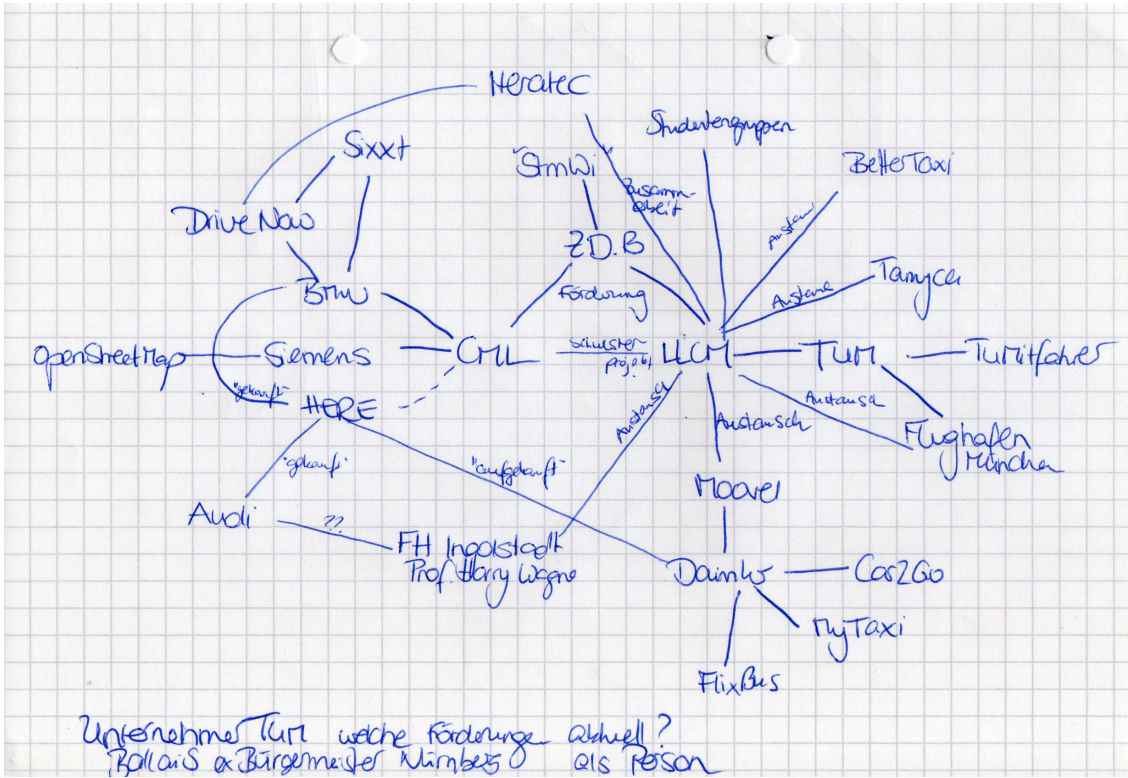 Heratec
Studentengruppen
Sixxt
StmWi
BetterTaxi
Zusamm-
arbeit
DriveNow
ZD.B
Austau
Tamyca
BMW
Förderung
Austau
OpenStreetMap
Siemens
CML
Schuster
projekt
LLCM
TUM
TUMitfahrer
"gekauft"
HERE
Austausch
Austausch
Austausch
Flughafen
München
"gekauft"
"aufgekauft"
Moovel
Audi
??
FH Ingolstadt
Prof. Harry Wagner
Daimler
Car2Go
MyTaxi
FlixBus
UnternehmerTUM welche Förderungen aktuell?
ex Bürgermeister Nürnberg als Person